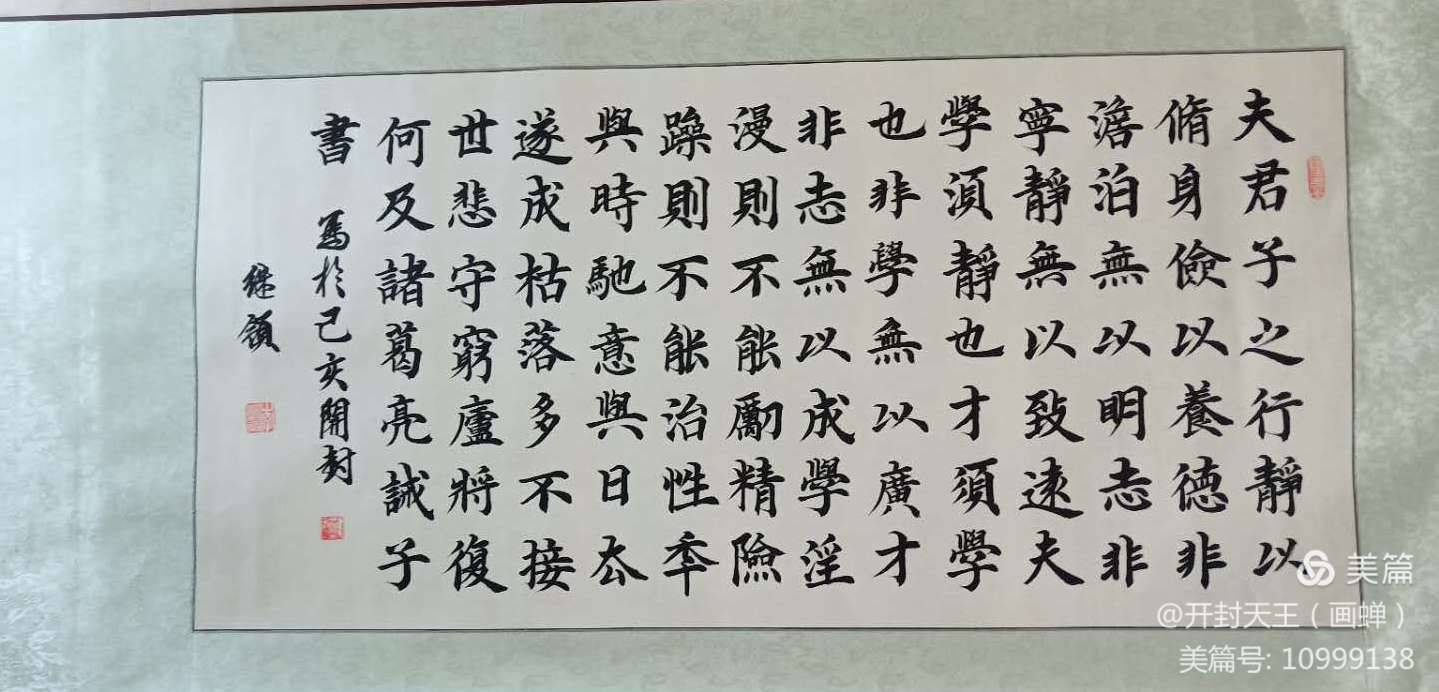 夫君子之行靜以
脩身儉以養德非
澹泊無以明志非
寧靜無以致遠夫
學須靜也才須學
也非學無以廣才
非志無以成學淫
漫則不能勵精險
躁則不能治性年
與時馳意與日去
遂成枯落多不接
世悲守窮廬將復
何及諸葛亮誡子
書 寫於己亥開封
继領
美篇
@开封天王（画蝉）
美篇号: 10999138